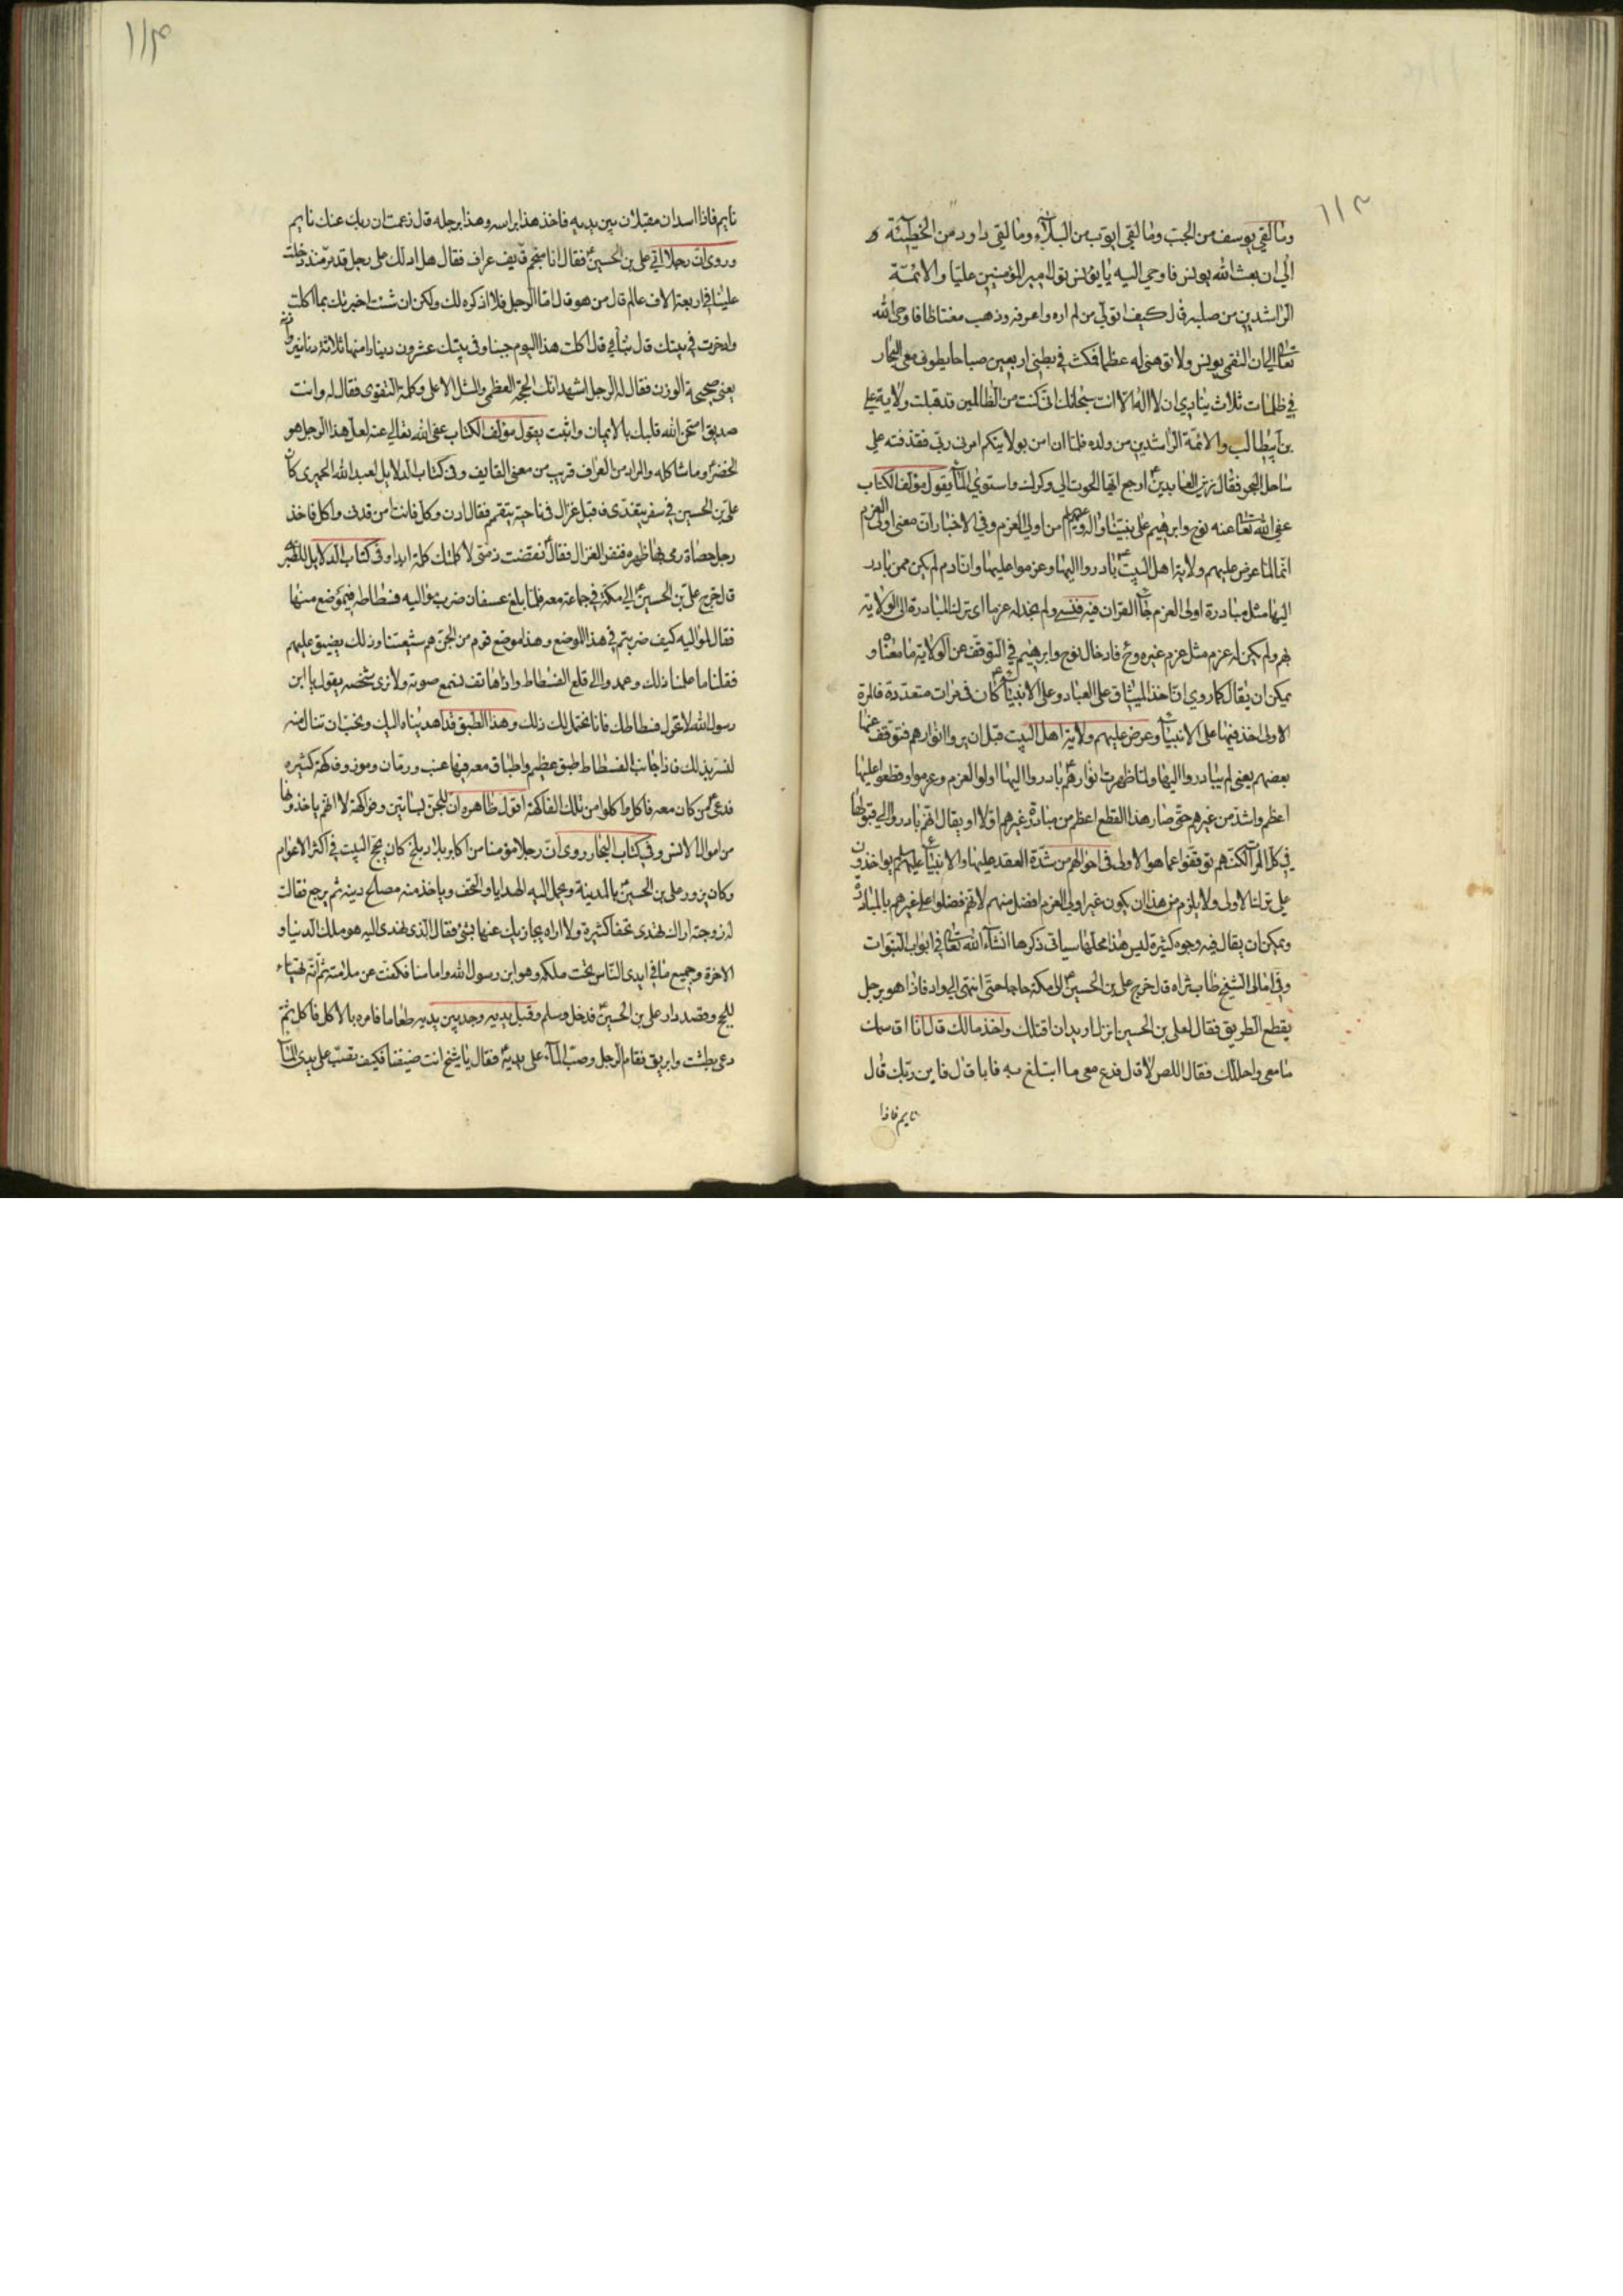 ١١٣
وما لقي يوسف من الجب وما لقي ايوب من البلاء وما لقي داود من الخطيئة
الى ان بعث الله يونس فاوحى اليه يا يونس تول امير المؤمنين عليا والائمة
الراشدين من صلبه قال كيف اتولى من لم اره واعرفه وذهب مغتاظا فاوحى الله
تعالى الي ان التقمي يونس ولا توهني له عظما فمكث في بطني اربعين صباحا يطوف معي البحار
في ظلمات ثلاث ينادي ان لا اله الا انت سبحانك اني كنت من الظالمين قد قبلت ولاية علي
بن ابيطالب والائمة الراشدين من ولده فلما ان امن بولايتكم امرني ربي فقذفته على
ساحل البحر فقال زين العابدين ارجع ايها الحوت الى وكرك واستوي الماء يقول مؤلف الكتاب
عفي الله تعالى عنه نوح وابرهيم على نبينا واله و من اولي العزم وفي الاخبار ان معنى اولى العزم
انهم لما عرض عليهم ولاية اهل البيت بادروا اليها وعزموا عليها وان ادم لم يكن ممن بادر
اليها مثل مبادرة اولى العزم فجاء القران فيه فنسي ولم نجد له عزما اى ترك المبادرة الى الولاية
لهم ولم يكن له عزم مثل عزم غيره وح فادخال نوح وابرهيم في التوقف عن الولاية ما معناه و
يمكن ان يقال كما روي ان اخذ الميثاق على العباد وعلى الانبياء كان في مرات متعددة فالمرة
الاولى اخذ فيها على الانبياء وعرض عليهم ولاية اهل البيت قبل ان يروا انوارهم فتوقف عنها
بعضهم يعني لم يبادروا اليها ولما ظهرت انوارهم بادروا اليها اولوا العزم وعزموا وقطعوا عليها
اعظم واشد من غيرهم حتى صار هذا القطع اعظم من مبادرة غيرهم اولا او يقال انهم بادروا الى قبولها
في كل المرات لكنهم توقفوا عما هو الاولى في احوالهم من شدة العقد عليها والانبياء عليهم يواخذون
على ترك الاولى ولا يلزم من هذا ان يكون غير اولي العزم افضل منهم لانهم فضلوا على غيرهم بالمبادرة
ويمكن ان يقال فيه وجوه كثيرة ليس هذا محلها سياتي ذكرها انشاء الله تعالى في ابواب النبوات
وفي امالي الشيخ طاب ثراه قال خرج علي بن الحسين الى مكة حاجا حتى انتهى الى واد فاذا هو برجل
يقطع الطريق فقال لعلي بن الحسين انزل اريد ان اقتلك واخذ مالك قال انا اقاسمك
ما معى واحللك فقال اللص لا قال فدع معى ما اتبلغ به فابا قال فاين ربك قال
نايم فاذا
١١٤
نايم فاذا اسدان مقبلان بين يديه فاخذ هذا براسه وهذا برجله قال زعمت ان ربك عنك نايم
وروى ان رجلا اتي علي بن الحسين فقال انا منجم قايف عراف فقال هل ادلك على رجل قد مر منذ دخلت
علينا في اربعة الاف عالم قال من هو قال اما الرجل فلا اذكره لك ولكن ان شئت اخبرتك بما اكلت
وادخرت في بيتك قال نبأني قال اكلت هذا اليوم جبنا وفي بيتك عشرون دينارا منها ثلاثة دنانير
يعني صحيحة الوزن فقال له الرجل اشهد انك الحجة العظمى والمثل الاعلى وكلمة التقوى فقال له وانت
صديق امتحن الله قلبك بالايمان واثبت يقول مؤلف الكتاب عفي الله تعالى عنه لعل هذا الرجل هو
الخضر وما شاكله والمراد من العراف قريب من معنى القايف وفي كتاب الدلايل لعبد الله الحميرى كان
علي بن الحسين في سفر يتغدى فاقبل غزال في ناحية يتقمم فقال ادن وكل فانت امن فدنى واكل فاخذ
رجل حصاة رمى بها ظهره فنفر الغزال فقال نقضت ذمتي لا كلمتك كلمة ابدا وفي كتاب الدلايل للطبري
قال خرج علي بن الحسين الى مكة في جماعة معه فلما بلغ عسفان ضرب مواليه فسطاطه في موضع منها
فقال لمواليه كيف ضربتم في هذا الموضع وهذا موضع قوم من الجن هم شيعتنا وذلك يضيق عليهم
فقلنا ما علمنا ذلك وعمدوا الى قلع الفسطاط واذا هاتف نسمع صوته ولا نرى شخصه يقول يا ابن
رسول الله لا تحول فسطاطك فانا نحتمل لك ذلك وهذا الطبق قد اهديناه اليك ونحب ان تنال منه
لنسر بذلك فاذا جانب الفسطاط طبق عظيم واطباق معه فيها عنب ورمان وموز وفاكهة كثيره
فدعى من كان معه فاكل واكلوا من تلك الفاكهة اقول ظاهره ان للجن بساتين وفواكهة لا انهم ياخذونها
من اموال الانس وفي كتاب البحار روى ان رجلا مؤمنا من اكابر بلاد بلخ كان يحج البيت في اكثر الاعوام
وكان يزور علي بن الحسين بالمدينة ويحمل اليه الهدايا والتحف وياخذ منه مصالح دينه ثم يرجع فقالت
له زوجته اراك تهدى تحفا كثيرة ولا اراه يجازيك عنها بشئ فقال الذى نهدى اليه هو ملك الدنيا و
الاخرة وجميع ما في ايدى الناس تحت ملكه وهو ابن رسول الله وامامنا فكفت عن ملامته ثم انه تهيأ
للحج وقصد دار علي بن الحسين فدخل وسلم وقبل يديه وجد بين يديه طعاما فامره بالاكل فاكل ثم
دعى بطشت وابريق فقام الرجل وصب الماء على يديه فقال يا شيخ انت ضيفنا فكيف تصب على يدى الماء